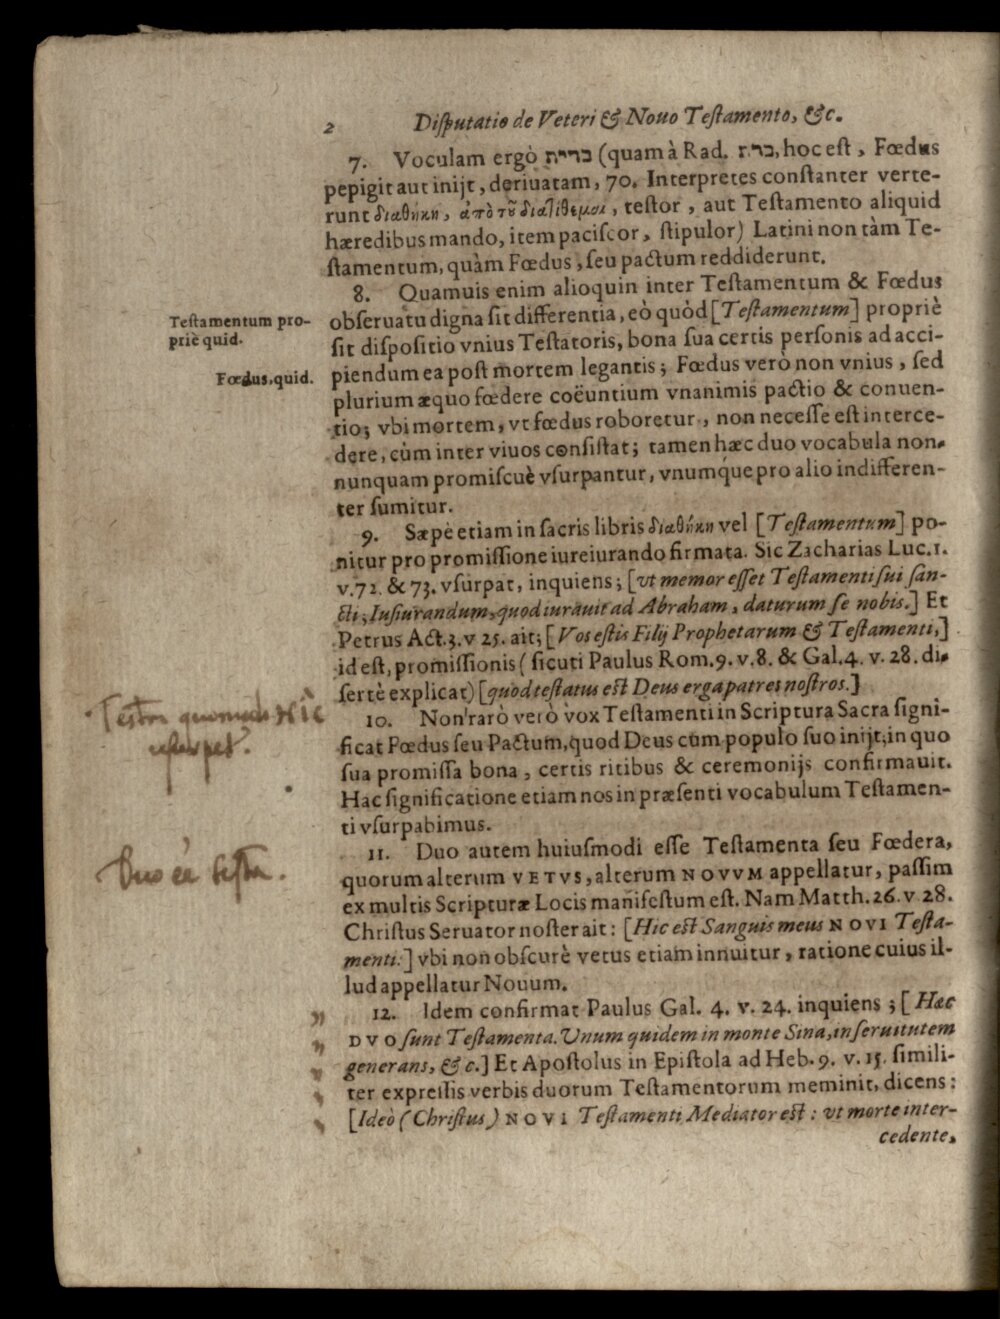 2 Diſputatio de Veteri & Nouo Teſtamento, &c.
7. Voculam ergò ברית (quam à Rad. ברת, hoc eſt, Fœdus
pepigit aut inijt, deriuatam, 70. Interpretes conſtanter verte-
runt διαθήκη, ἀπὸ τοῦ διατίθεμαι, teſtor, aut Teſtamento aliquid
hæredibus mando, item paciſcor, ſtipulor) Latini non tàm Te-
ſtamentum, quàm Fœdus, ſeu pactum reddiderunt.
8. Quamuis enim alioquin inter Teſtamentum & Fœdus
Teſtamentum pro-
priè quid.
obſeruatu digna ſit differentia, eò quòd [Teſtamentum] propriè
ſit diſpoſitio vnius Teſtatoris, bona ſua certis perſonis ad acci-
Fœdus, quid.
piendum ea poſt mortem legantis; Fœdus verò non vnius, ſed
plurium æquo fœdere coëuntium vnanimis pactio & conuen-
tio; vbi mortem, vt fœdus roboretur, non neceſſe eſt interce-
dere, cùm inter viuos conſiſtat; tamen hæc duo vocabula non-
nunquam promiſcuè vſurpantur, vnumq́ue pro alio indifferen-
ter ſumitur.
9. Sæpè etiam in ſacris libris διαθήκη vel [Teſtamentum] po-
nitur pro promiſſione iureiurando firmata. Sic Zacharias Luc. 1.
v. 72. & 73. vſurpat, inquiens; [vt memor eſſet Teſtamenti ſui ſan-
cti, Iuſiurandum, quod iurauit ad Abraham, daturum ſe nobis.] Et
Petrus Act. 3. v 25. ait; [Vos eſtis Filij Prophetarum & Teſtamenti,]
id eſt, promiſſionis (ſicuti Paulus Rom. 9. v. 8. & Gal. 4. v. 28. di-
ſertè explicat) [quod teſtatus eſt Deus erga patres noſtros.]
Testm quomodo Hìc
usurpet.
10. Non rarò verò vox Teſtamenti in Scriptura Sacra ſigni-
ficat Fœdus ſeu Pactum, quod Deus cum populo ſuo inijt, in quo
ſua promiſſa bona, certis ritibus & ceremonijs confirmauit.
Hac ſignificatione etiam nos in præſenti vocabulum Teſtamen-
ti vſurpabimus.
11. Duo autem huiuſmodi eſſe Teſtamenta ſeu Fœdera,
Duo testa.
quorum alterum VETVS, alterum NOVVM appellatur, paſſim
ex multis Scripturæ Locis manifeſtum eſt. Nam Matth. 26. v 28.
Chriſtus Seruator noſter ait: [Hic eſt Sanguis meus NOVI Teſta-
menti:] vbi non obſcurè vetus etiam innuitur, ratione cuius il-
lud appellatur Nouum.
12. Idem confirmat Paulus Gal. 4. v. 24. inquiens; [Hæc
DVO ſunt Teſtamenta. Unum quidem in monte Sina, in ſeruitutem
generans, &c.] Et Apoſtolus in Epiſtola ad Heb. 9. v. 15. ſimili-
ter expreſſis verbis duorum Teſtamentorum meminit, dicens:
[Ideò (Chriſtus) NOVI Teſtamenti Mediator eſt: vt morte inter-
cedente,